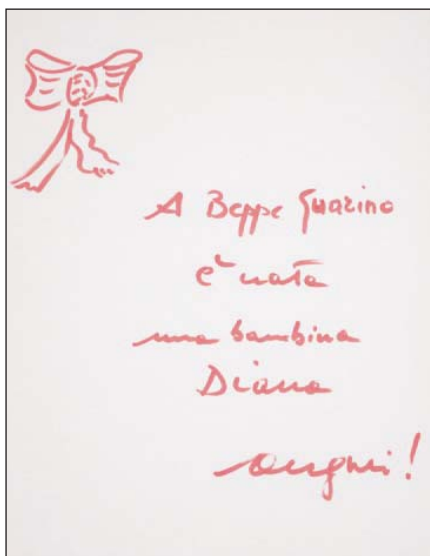 A Beppe Guarino
è nata
una bambina
Diana
auguri!